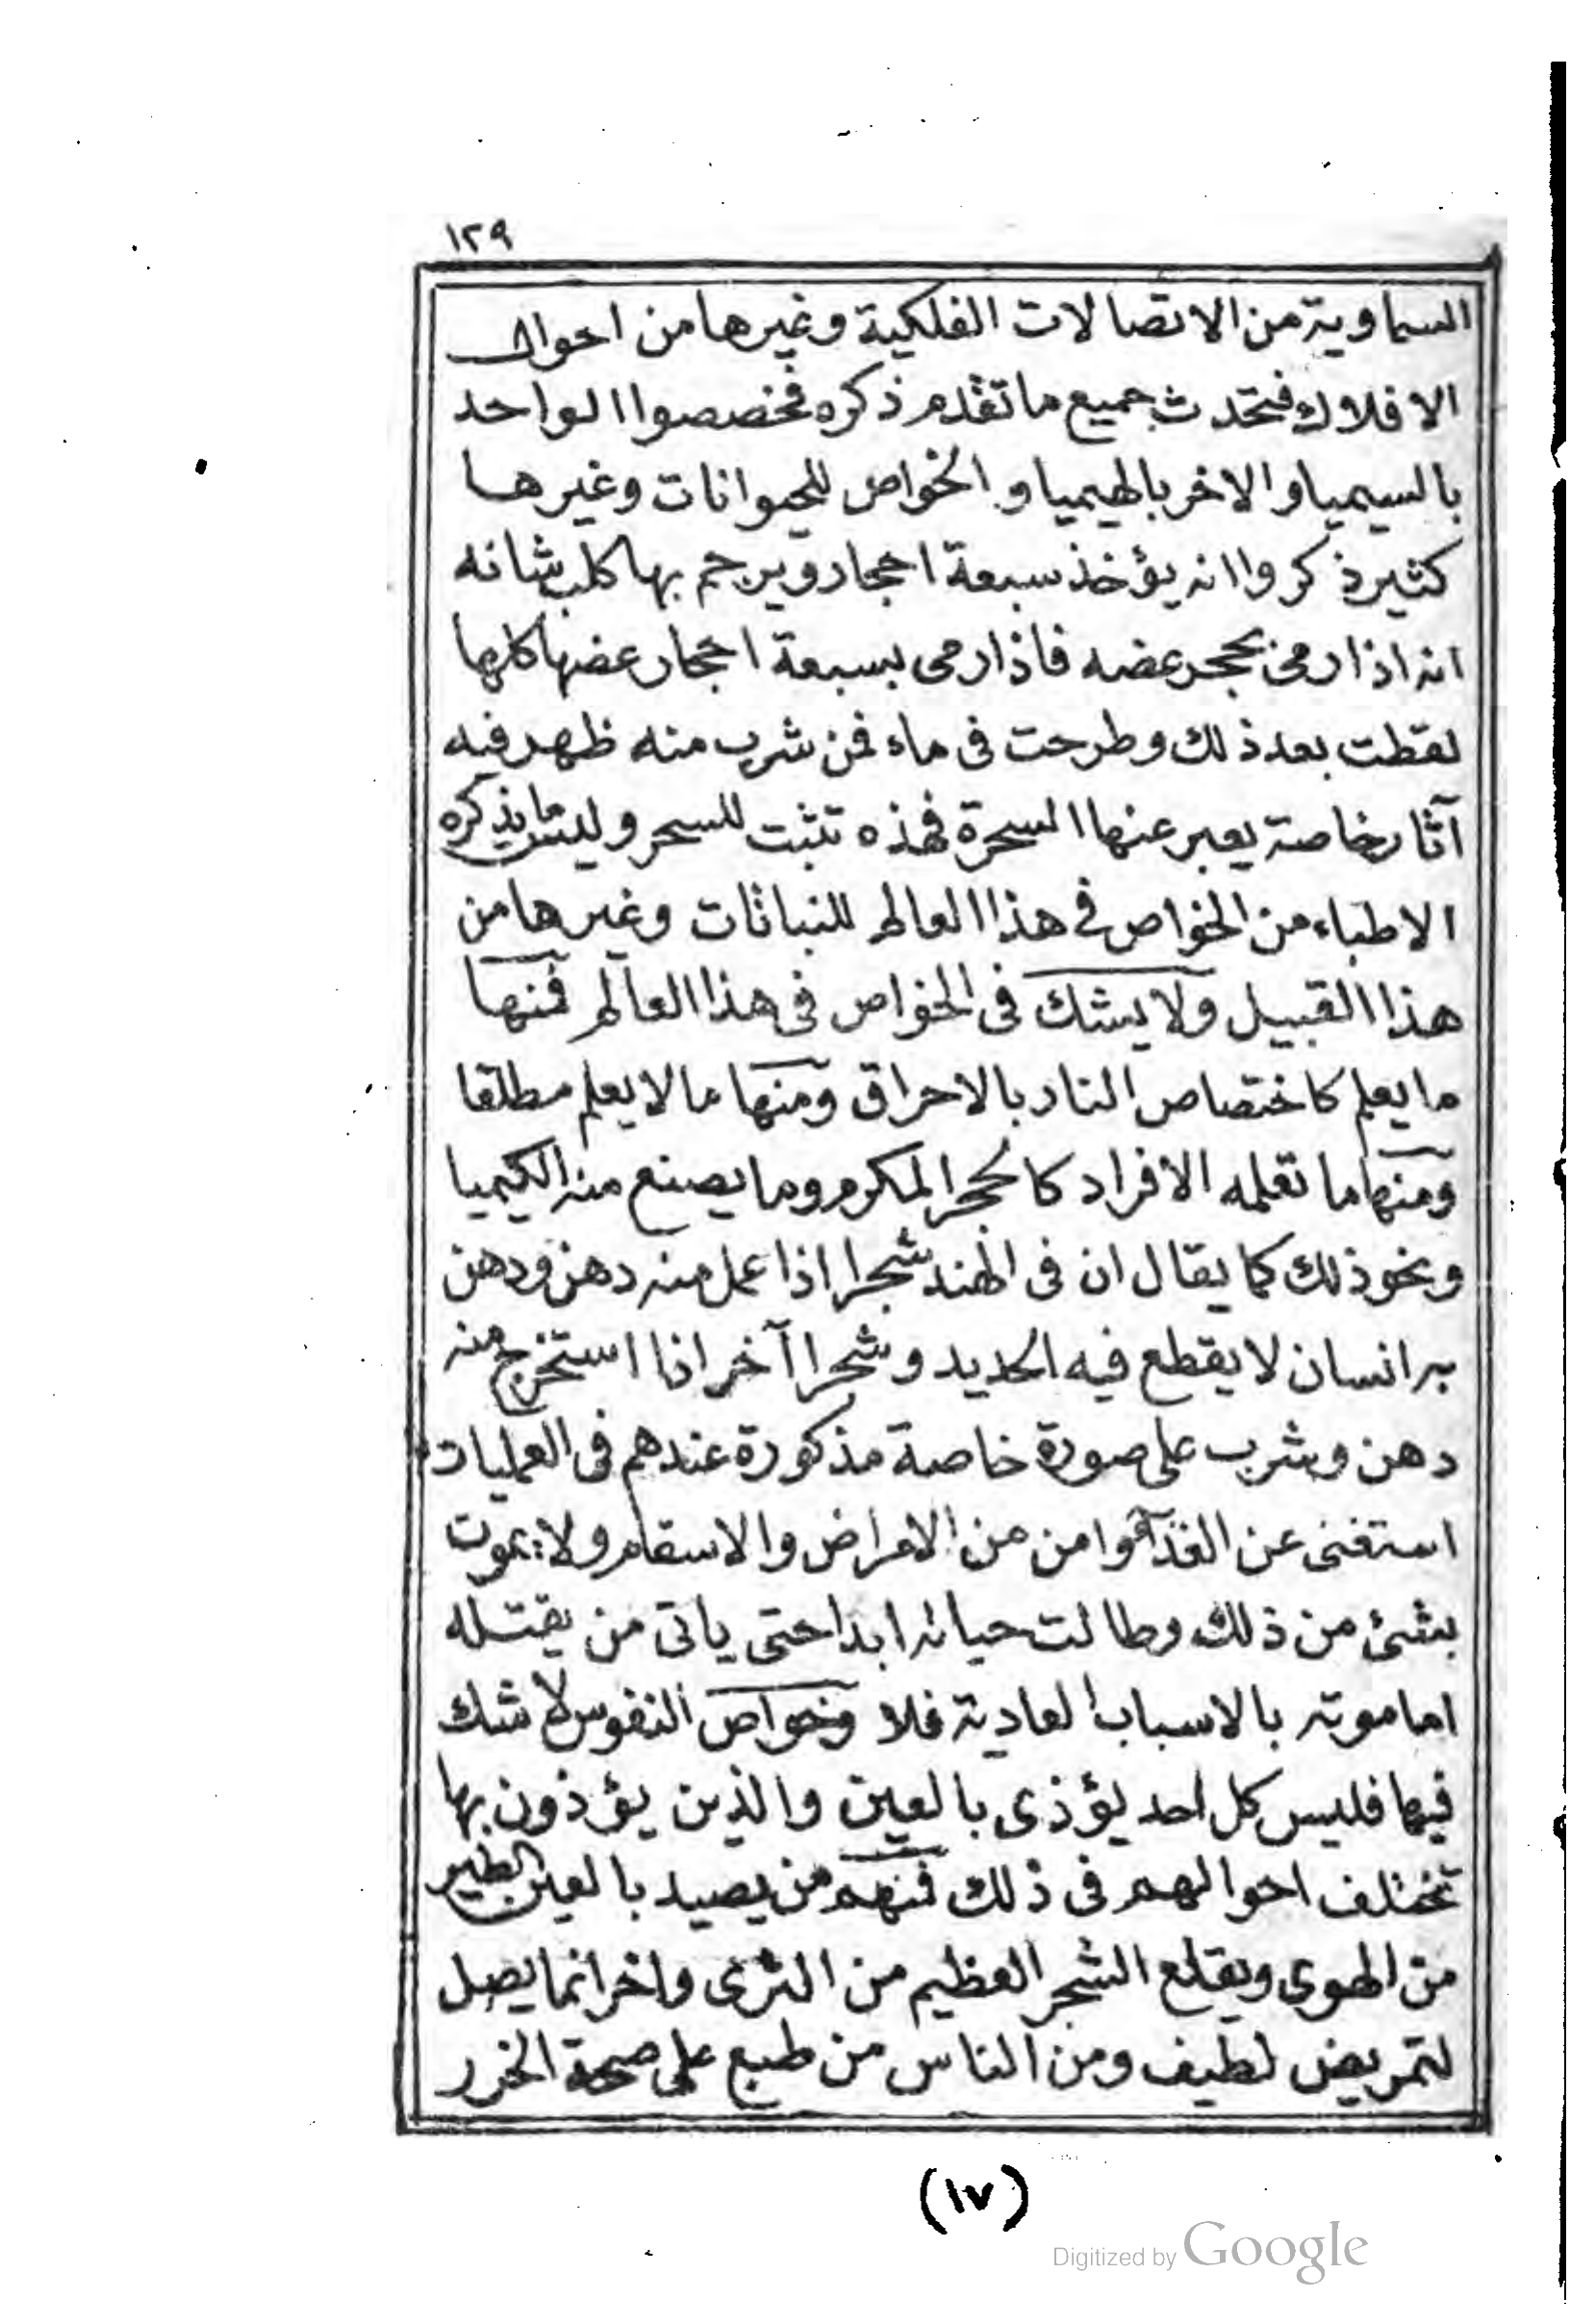 ١٢٩
السماوية من الاتصالات الفلكية وغيرها من احوال
الافلاك فتحدث جميع ما تقدم ذكره فخصصوا الواحد
بالسيميا والاخر بالهيميا والخواص للحيوانات وغيرها
كثير ذكروا انه يؤخذ سبعة احجار ويرجم بها كلب شانه
انه اذا رمى بحجر عضه فاذا رمى بسبعة احجار عضها كلها
لقطت بعد ذلك وطرحت فى ماء فمن شرب منه ظهر فيه
آثار خاصة يعبر عنها السحرة فهذه تثبت للسحر وليس ما يذكره
الاطباء من الخواص فى هذا العالم للنباتات وغيرها من
هذا القبيل ولا يشك فى الخواص فى هذا العالم فمنها
ما يعلم كاختصاص النار بالاحراق ومنها ما لا يعلم مطلقا
ومنها ما تعلمه الافراد كالحجر المكرم وما يصنع منه الكيميا
ونحو ذلك كما يقال ان فى الهند شجرا اذا عمل منه دهن ودهن
به انسان لا يقطع فيه الحديد وشجرا آخر اذا استخرج منه
دهن وشرب على صورة خاصة مذكورة عندهم فى العمليات
استغنى عن الغذآء وامن من الامراض والاسقام ولا يموت
بشئ من ذلك وطالت حياته ابدا حتى ياتى من يقتله
اما موته بالاسباب العادية فلا وخواص النفوس لا شك
فيها فليس كل احد يؤذى بالعين والذين يؤذون بها
تختلف احوالهم فى ذلك فمنهم من يصيد بالعين الطير
من الهوى ويقلع الشجر العظيم من الثرى واخر انما يصل
لتمريض لطيف ومن الناس من طبع على صحة الحزر
(١٧)
Digitized by Google